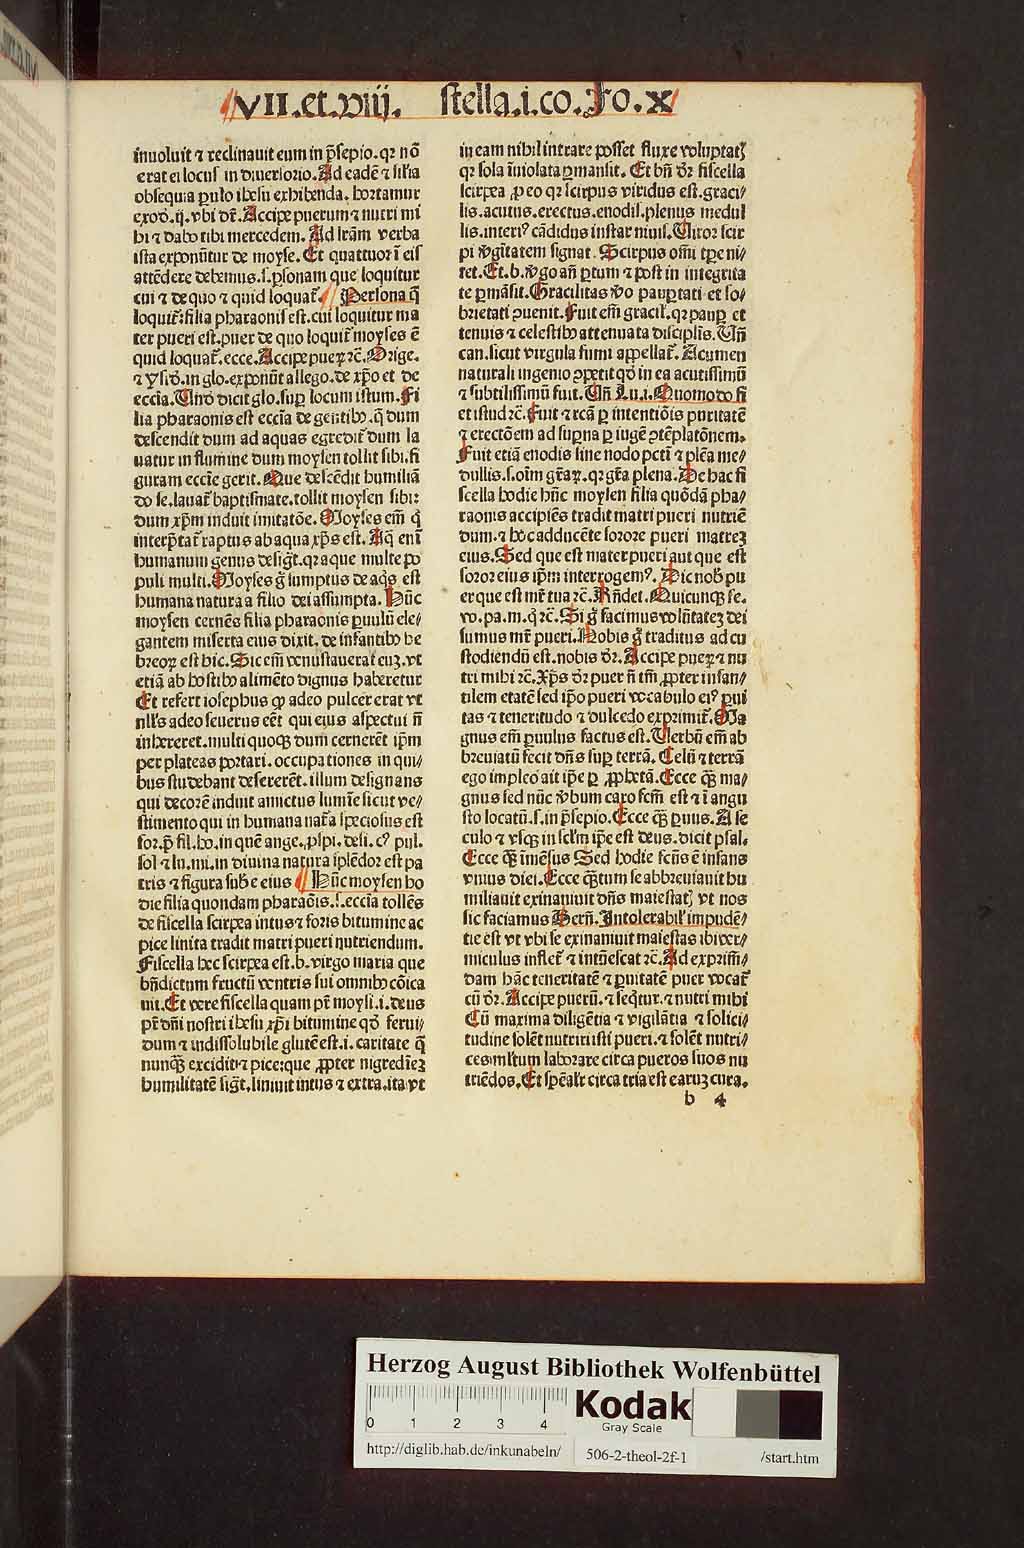 VII.et.viij. stella.i.co. Fo.X
inuoluit ⁊ reclinauit eum in p̄sepio.qꝛ nō
erat ei locus in diuersorio. Ad eadē ⁊ sil'ia
obsequia ꝑulo ihesu exhibenda. hortamur
exod.ij. vbi dr̄. Accipe puerum ⁊ nutri mi
hi ⁊ dabo tibi mercedem. Ad lr̄am verba
ista exponūtur de moyse. Et quattuor ī eis
attēdere debemus.s. ꝑsonam que loquitur
cui ⁊ de quo ⁊ quid loquat̄. Persona q̄
loquit̄: filia pharaonis est. cui loquitur ma
ter pueri est. puer de quo loquit̄ moyses ē
quid loquat̄. ecce. Accipe pueꝝ ⁊c̄. Orige.
⁊ ysid. in glo. exponūt allego. de xp̄o et de
eccīa. Viro dicit glo. suꝑ locum istum. Fi
lia pharaonis est eccīa de gentibꝰ. q̄ dum
descendit dum ad aquas egredit̄ dum la
uatur in flumine dum moysen tollit sibi. fi
guram eccīe gerit. Que descēdit humiliā
do se. lauat̄ baptismate. tollit moysen sibi:
dum xp̄m induit imitatōe. Moyses em̄ q̇
interp̄tat̄ raptus ab aqua xp̄s est. Aq̄ eni
humanum genus desigt̄. qꝛ aque multe po
puli multi. Moyses g̊ sumptus de aq̄s est
humana natura a filio dei assumpta. Hūc
moysen cernēs filia pharaonis ꝑuulū ele
gantem miserta eius dixit. de infantibꝰ he
breoꝝ est hic. Sic em̄ venustauerat euꝫ. vt
etiā ab hostibꝰ alimēto dignus haberetur
Et refert iosephus ꝙ adeo pulcer erat vt
null's adeo seuerus eēt qui eius aspectui nō
inhereret. multi quoqꝫ dum cernerēt ip̄m
per plateas portari. occupationes in qui/
bus studebant desererēt. illum designans
qui decorē induit amictus lumīe sicut ve/
stimento qui in humana nat̄a speciosus est
for. p̄ fil. ho. in quē ange. ꝓspi. desi. cꝰ pul.
sol ⁊ lu. mi. in diuina natura splēdor est pa
tris ⁊ figura sub̄e eius Hūc moysen ho
die filia quondam pharaōis.s. eccīa tollēs
de fiscella scirpea intus ⁊ foris bitumine ac
pice linita tradit matri pueri nutriendum.
Fiscella hec scirpea est. b. virgo maria que
bn̄dictum fructū ventris sui omnibꝰ cōica
uit. Et vere fiscella quam pr̄ moysi.i. deus
pr̄ dn̄i nostri ihesu xp̄i bitumine qd̄ ferui/
dum ⁊ indissolubile glutē est.i. caritate q̄
nunqꝫ excidit ⁊ pice: que ꝓpter nigredīeꝫ
humilitatē sigt̄. liniuit intus ⁊ extra. ita vt
in eam nihil intrare posset fluxe voluptat̄
qꝛ sola inuiolata ꝑmansit. Et bn̄ dr̄ fiscella
scirpea ꝓ eo qꝛ scirpus viridus est. graci/
lis. acutus. erectus. enodis. plenus medul
lis. interiꝰ cādidus instar niuis. Viror scir
pi v̄gītatem signat. Scirpus om̄i tꝑe ni/
ret. Et. b. v̄go an̄ ꝑtum ⁊ post in integrita
te ꝑmāsit. Gracilitas v̄o pauꝑtati et so/
brietati ꝯuenit. Fuit em̄ gracil'. qꝛ pauꝑ et
tenuis ⁊ celestibꝰ attenuata disciplīs. Vn̄
can. sicut virgula fumi appellat̄. Acumen
naturali ingenio ꝯpetit qd̄ in ea acutissimū
⁊ subtilissimū fuit. Vn̄ Lu.i. Quomodo fi
et istud ⁊c̄. Fuit ⁊ rcā ꝑ intentiōis puritatē
⁊ erectōem ad suꝑna ꝑ iugē ꝯtēplatōnem.
Fuit etiā enodis sine nodo pcti ⁊ plēa me/
dullis.s. oīm gr̄aꝝ. qꝛ gr̄a plena. De hac fi
scella hodie hūc moysen filia quōdā pha/
raonis accipiēs tradit matri pueri nutriē
dum. ⁊ hoc adducēte sorore pueri matreꝫ
eius. Sed que est mater pueri aut que est
soror eius ip̄m interrogemꝰ. Dic nob̄ pu
er que est mr̄ tua ⁊c̄. Rn̄det. Quicunqꝫ fe.
vo. pa. m. q̇ ⁊c̄. Si g̊ facimus volūtateꝫ dei
sumus mr̄ pueri. Nobis g̊ traditus ad cu
stodiendū est. nobis dr̄. Accipe pueꝝ ⁊ nu
tri mihi ⁊c̄. Xp̄s dr̄ puer nō tm̄ ꝓpter infan/
tilem etatē sed ip̄o pueri vocabulo eiꝰ pui
tas ⁊ teneritudo ⁊ dulcedo exprimit̄. Ma
gnus em̄ ꝑuulus factus est. Verbū em̄ ab
breuiatū fecit dn̄s suꝑ terrā. Celū ⁊ terrā
ego impleo ait ip̄e ꝑ ꝓphetā. Ecce qꝫ ma/
gnus sed nūc v̄bum caro fcm̄ est ⁊ ī angu
sto locatū.s. in p̄sepio. Ecce qꝫ ꝑuus. A se
culo ⁊ vsqꝫ in sclm̄ ip̄e est deus. dicit psal.
Ecce qꝫ imēsus Sed hodie fcūs ē infans
vnius diei. Ecce qꝫtum se abbreuiauit hu
miliauit exinaniuit dn̄s maiestat̄ vt nos
sic faciamus Bern̄. Intolerabil' impudē/
tie est vt vbi se exinaniuit maiestas ibi ver/
miculus inflet̄ ⁊ intūescat ⁊c̄. Ad exprim̄/
dam hāc teneritatē ⁊ ꝑuitatē puer vocat̄
cū dr̄. Accipe puerū. ⁊ seqtur. ⁊ nutri mihi
Cū maxima diligētia ⁊ vigilātia ⁊ solici/
tudine solēt nutriri isti pueri. ⁊ solēt nutri/
ces ml̄tum laborare circa pueros suos nu
triēdos. Et sp̄ealr̄ circa tria est earuꝫ cura.
b 4
Herzog August Bibliothek Wolfenbüttel
0 1 2 3 4
Kodak
Gray Scale
http://diglib.hab.de/inkunabeln/ 506-2-theol-2f-1 /start.htm